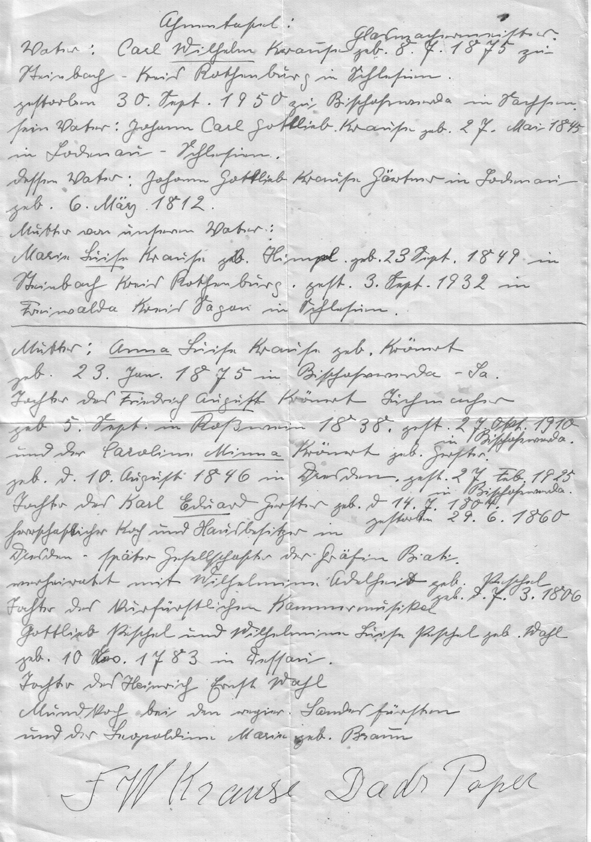 Ahnentafel:
Glasmachermeister.
Vater: Carl Wilhelm Krause geb. 8. 7. 1875 zu
Steinbach - Kreis Rothenburg in Schlesien.
gestorben 30. Sept. 1950 zu Bischofswerda in Sachsen
sein Vater: Johann Carl Gottlieb Krause geb. 27. Mai 1845
in Lodenau - Schlesien.
dessen Vater: Johann Gottlieb Krause Gärtner in Lodenau
geb. 6. März 1812.
Mutter von unserem Vater:
Marie Luise Krause geb. Himpel. geb. 23 Sept. 1849 in
Steinbach Kreis Rothenburg. gest. 3. Sept. 1932 in
Freiwalda Kreis Sagan in Schlesien.
Mutter: Anna Luise Krause geb. Krönert
geb. 23. Jan. 1875 in Bischofswerda - Sa.
Tochter des Friedrich August Krönert Tuchmacher
geb 5. Sept. in Roßwein 1838. gest. 27 Okt. 1910
in Bischofswerda.
und der Caroline Minna Krönert geb. Gerster.
geb. d. 10. August 1846 in Dresden. gest. 27 Feb 1925
in Bischofswerda.
Tochter des Karl Eduard Gerster geb. d 14. 7. 1804.
gestorben 29. 6. 1860
herrschaftlicher Koch und Hausbesitzer in
Dresden - später Gesellschafter der Gräfin
verheiratet mit Wilhelmine Adelheid geb. Peschel
geb. d. 7. 3. 1806
Tochter des Kurfürstlichen Kammermusikal
Gottlieb Peschel und Wilhelmine Luise Peschel geb. Wahl
geb. 10 Nov. 1783 in Dessau.
Tochter des Heinrich Ernst Wahl
Mundkoch bei den regier. Landesfürsten
und der Leopoldine Marie geb. Braun
F W Krause Dads Paper